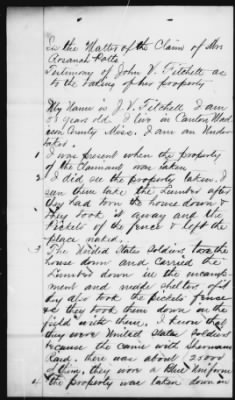 In the Matter of the Claim of Mrs
Rosanah Potts
Testimony of John V. Fitchett as
to the taking of his property
My Name is J. V. Fitchett I am
years old I live in Canton Mad
ison County Miss. I am an Under
taker.
1 I was present when the property
of the Claimant was taken
2 I did see the property taken. I
seen them take the Lumber after
they had torn the house down &
they took it away and the
Pickets of the fence & left the
place naked.
3 The United States Soldiers tore the
house down and Carried the
Lumber down in the encamp-
ment and made shelters of it
they also took the pickets fence
& they took them down in the
field with them. I know that
they were United States Soldiers
because they came with Shermans
Raid. there was about 25000
of them, they wore a Blue Uniform
4 The property was taken down on